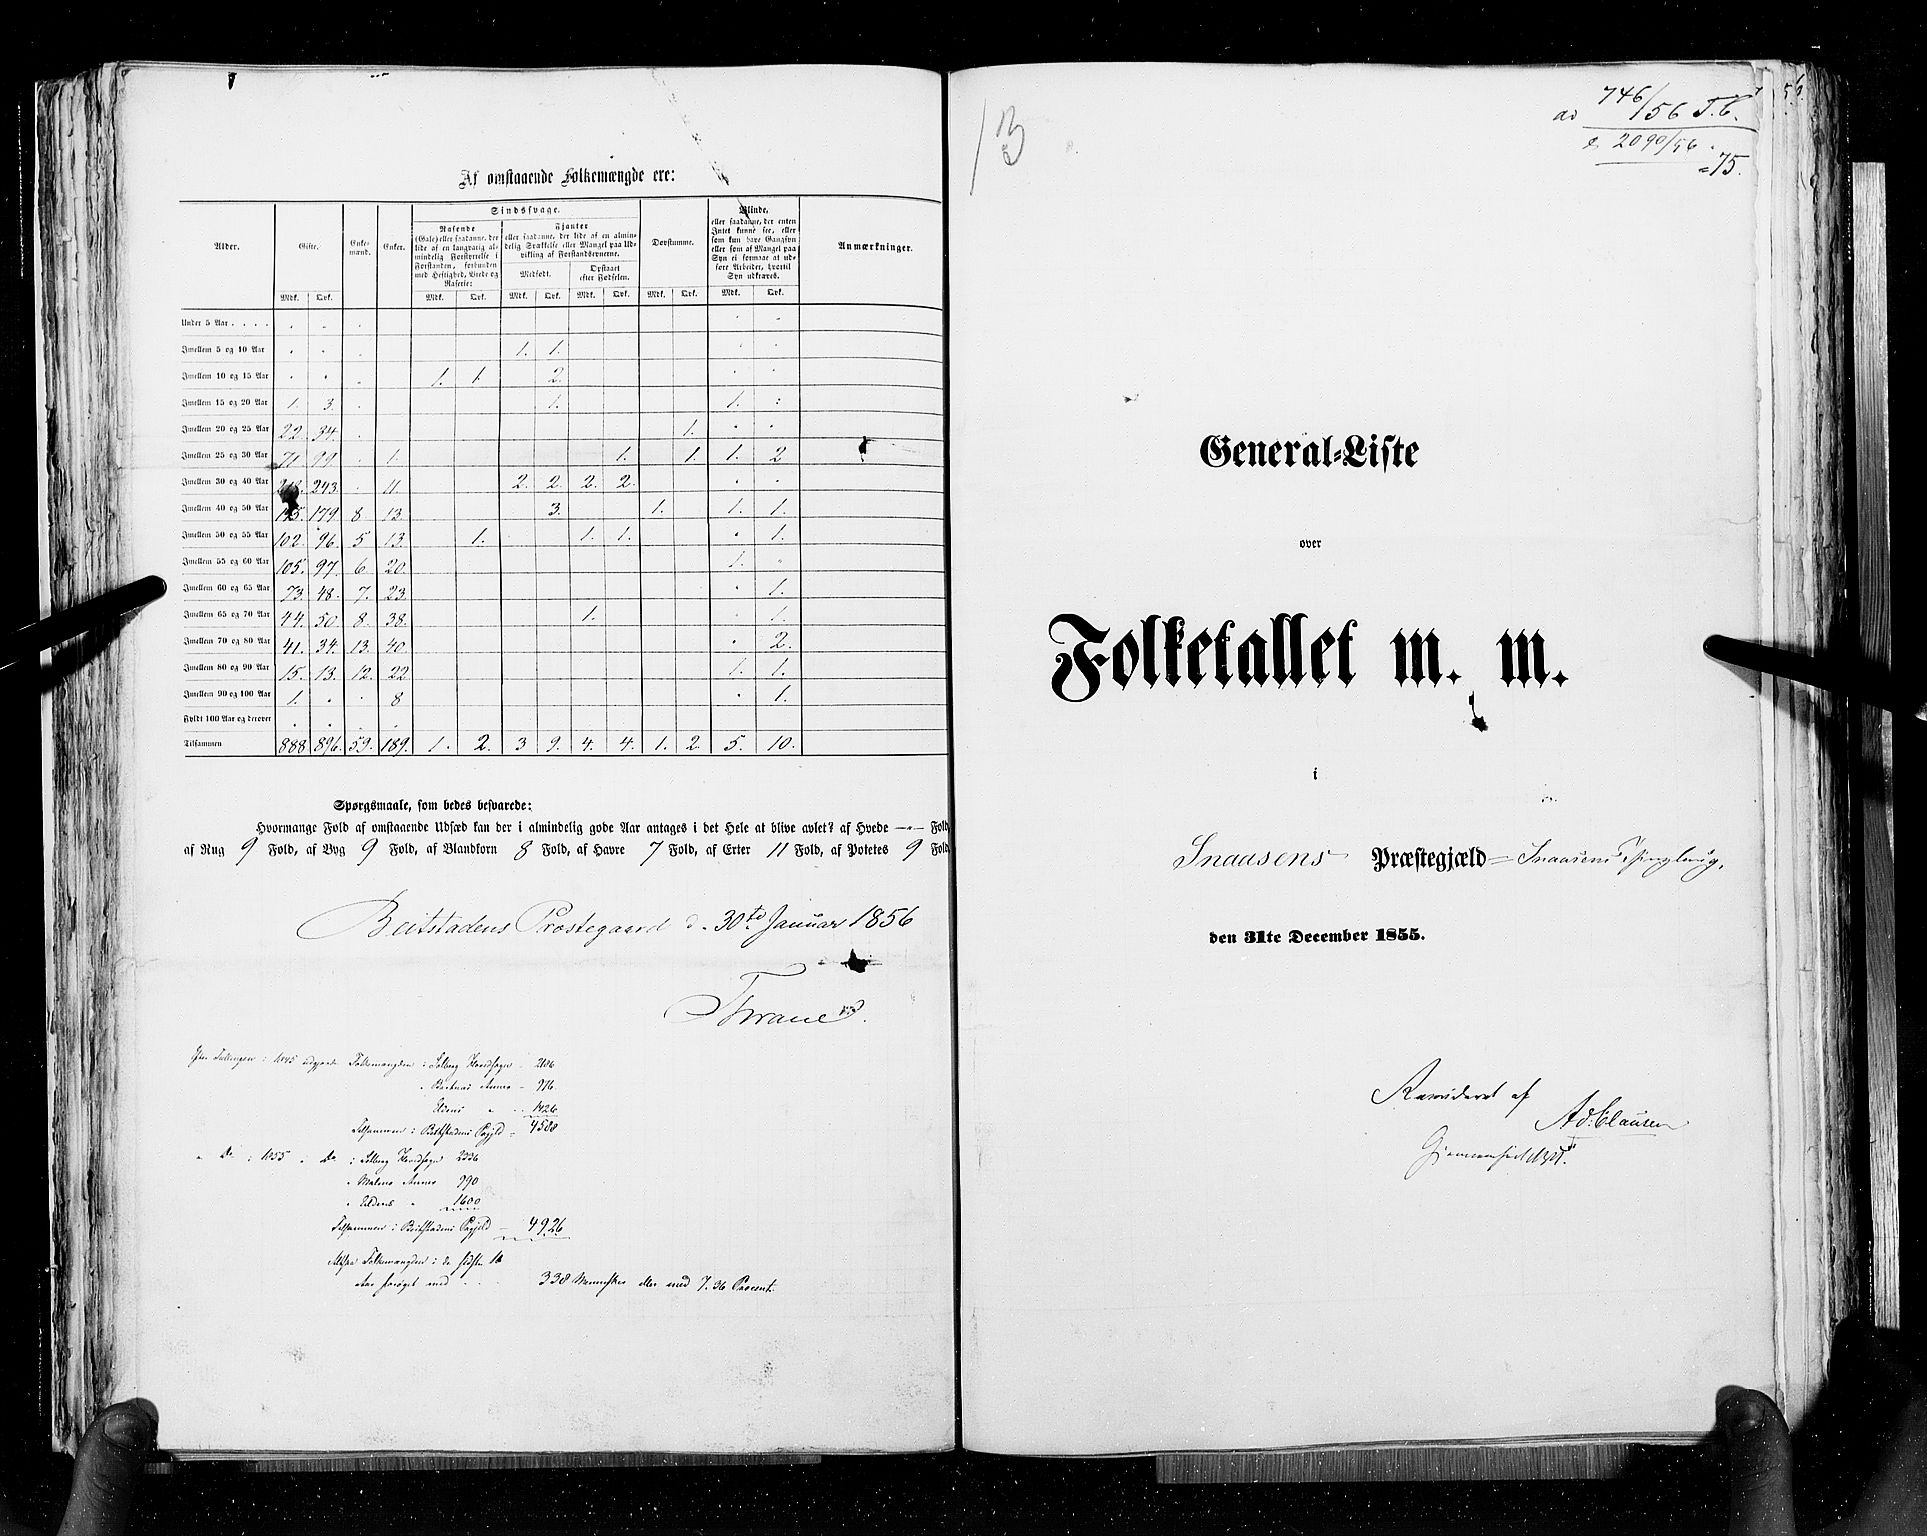 Af omstaaende Folkemængde ere:
Alder. Gifte. Enke-mænd. Enker. Sindssvage. Døvstumme. Blinde, Anmærkninger.
Rasende (Gale) eller saadanne, der lide af en langvarig almindelig Forstyrrelse i Forstanden, forbunden med Heftighed, Vrede og Raserie:
Fjanter eller saadanne, der lide af en almindelig Svækkelse eller Mangel paa Udvikling af Forstandsevnerne.
Medfødt. Opstaaet efter Fødselen.
eller saadanne, der enten Intet kunne see, eller som kun have Gangsyn eller som af Mangel paa Syn ei formaae at udføre Arbeider, hvortil Syn udkræves.
Mdk. Qvk. Mdk. Qvk. Mdk. Qvk. Mdk. Qvk. Mdk. Qvk. Mdk. Qvk.
Under 5 Aar . . . .
Imellem 5 og 10 Aar 1. 1.
Imellem 10 og 15 Aar 1. 1. 2.
Imellem 15 og 20 Aar 1. 3. 1. 1.
Imellem 20 og 25 Aar 22. 34. 1.
Imellem 25 og 30 Aar 71. 99. 1. 1. 1. 1. 2
Imellem 30 og 40 Aar 243. 11. 2. 2. 2. 2.
Imellem 40 og 50 Aar 179 8. 13. 3. 1. 1. 1.
Imellem 50 og 55 Aar 102. 96. 5 13. 1. 1. 1. 1.
Imellem 55 og 60 Aar 105. 97. 6 20. 1.
Imellem 60 og 65 Aar 73. 48. 7. 23. 1.
Imellem 65 og 70 Aar 44. 50. 8. 38. 1. 1.
Imellem 70 og 80 Aar 41. 34. 13. 40. 2.
Imellem 80 og 90 Aar 15. 13. 12. 22 1. 1.
Imellem 90 og 100 Aar 1. 8 1.
Fyldt 100 Aar og derover
Tilsammen 888 896. 59. 189. 1. 2. 3 9. 4. 4. 1. 2. 5. 10.
Spørgsmaale, som bedes besvarede:
Hvormange Fold af omstaaende Udsæd kan der i almindelig gode Aar antages i det Hele at blive avlet? af Hvede — Fold
af Rug 9 Fold, af Byg 9 Fold, af Blandkorn 8 Fold, af Havre 7 Fold, af Erter 11 Fold, af Potetes 9 Fold
Beitstadens Præstegaard d. 30te Januar 1856
Thrane
1845 Folkemængden i Solberg Hovedsogn 2186
Annex 976.
Eldens 1426
Tilsammen i Beitstadens Pgjeld 4588
Do 1855 Do i Solberg Hovedsogn 2336
Annex 990
Eldens 1600
Tilsammen i Beitstadens Pgjeld 4926
Altsaa Folkemængden i de sidste 10
Aar forøget med 338 Mennesker eller med 7.36 Procent.
13
ad 746/56 T.C.
2090/56
75.
General-Liste
over
Folketallet m. m.
i
Snaasens Præstegjæld Snaasens Thinglaug,
den 31te December 1855.
Revideret af
Ad. Clausen